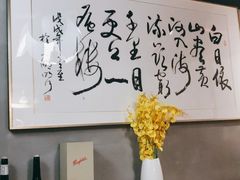 白日依
山尽黄
河入海
流欲穷
千里目
更上一
层楼
戊戌年冬至
Penfolds